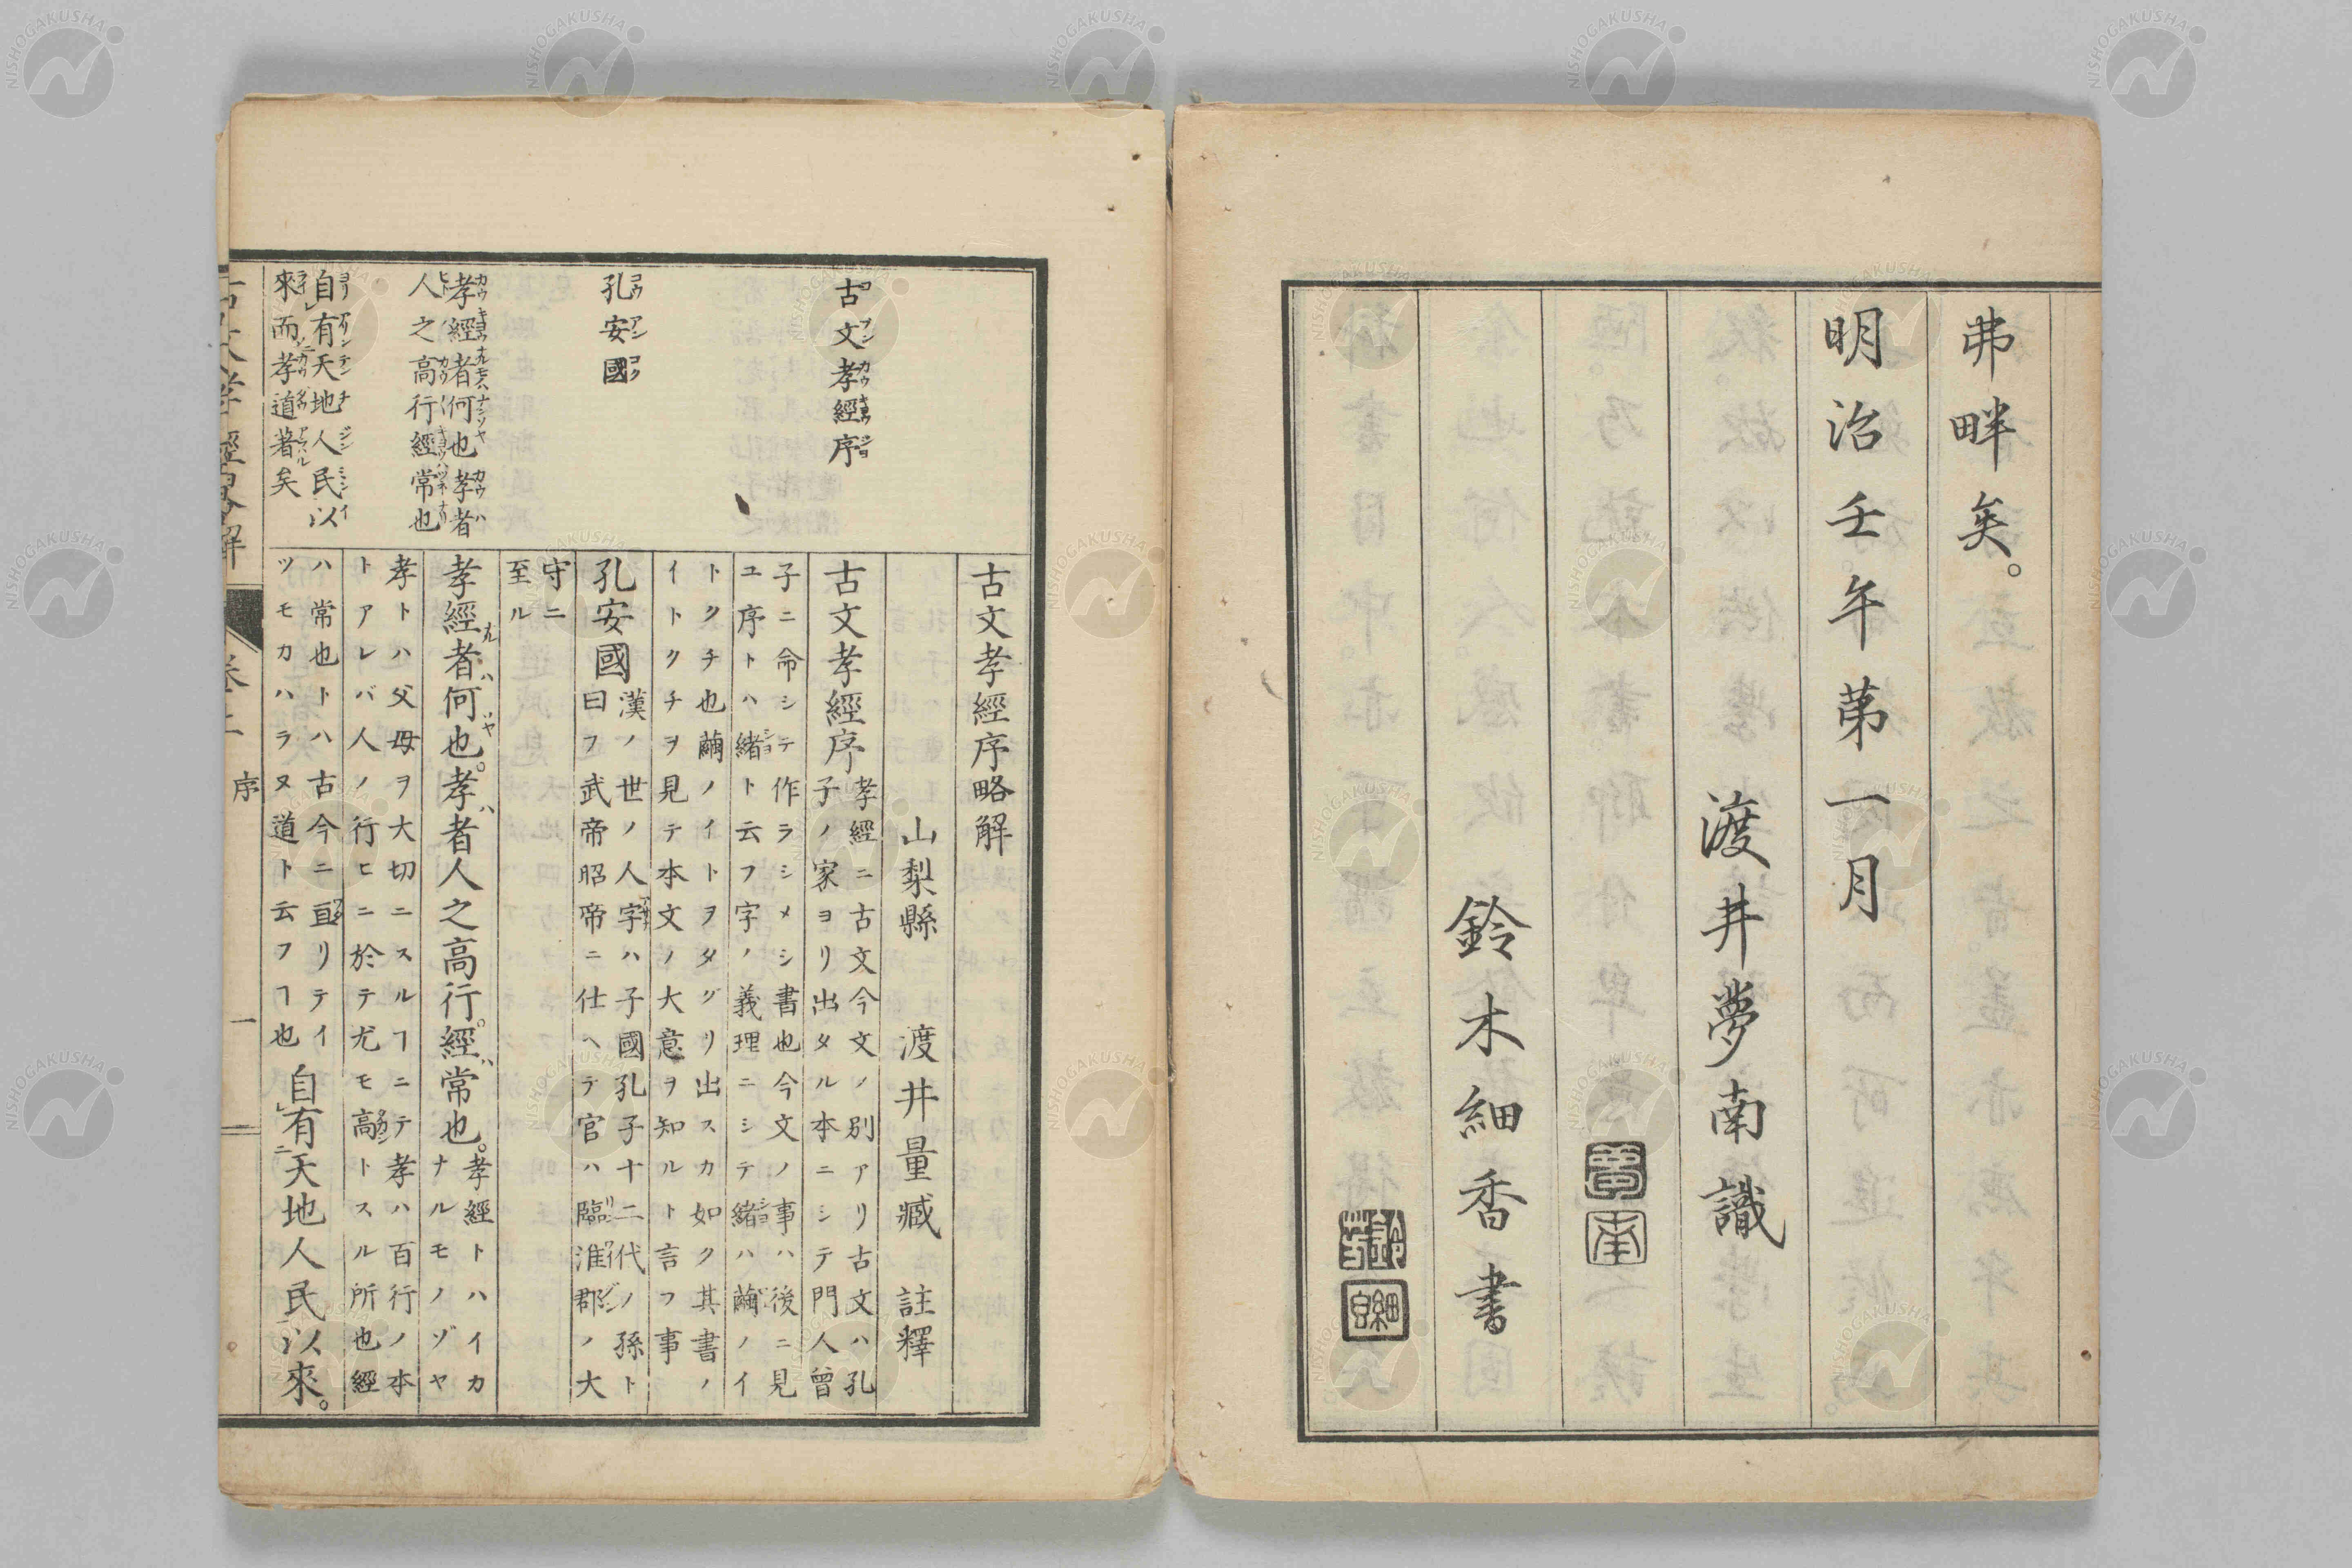 弗畔矣。
明治壬午第一月
渡井夢南識
鈴木細香書
古文孝經序
孔安國
孝經者何也孝者
人之高行經常也
自有天地人民以
來而孝道著矣
古文孝經序略解
山梨縣　渡井量臧　註釋
古文孝經序
孝經ニ古文今文ノ別アリ古文ハ孔
子ノ家ヨリ出タル本ニシテ門人曾
子ニ命シテ作ラシメシ書也今文ノ事ハ後ニ見
ユ序トハ緒ト云フ字ノ義理ニシテ緒ハ繭ノイ
トクチ也繭ノイトヲタグリ出スカ如ク其書ノ
イトクチヲ見テ本文ノ大意ヲ知ルト言フ事
孔安國
漢ノ世ノ人字ハ子國孔子十二代ノ孫ト
曰フ武帝昭帝ニ仕ヘテ官ハ臨淮郡ノ大
守ニ
至ル
孝經者何也。孝者人之高行。經常也。
孝經トハイカ
ナルモノゾヤ
孝トハ父母ヲ大切ニスルヿニテ孝ハ百行ノ本
トアレバ人ノ行ヒニ於テ尤モ高トスル所也經
ハ常也トハ古今ニ亘リテイ
ツモカハラヌ道ト云フヿ也
自有天地人民以來。
古文孝經略解
序
一
NISHOGAKUSHA